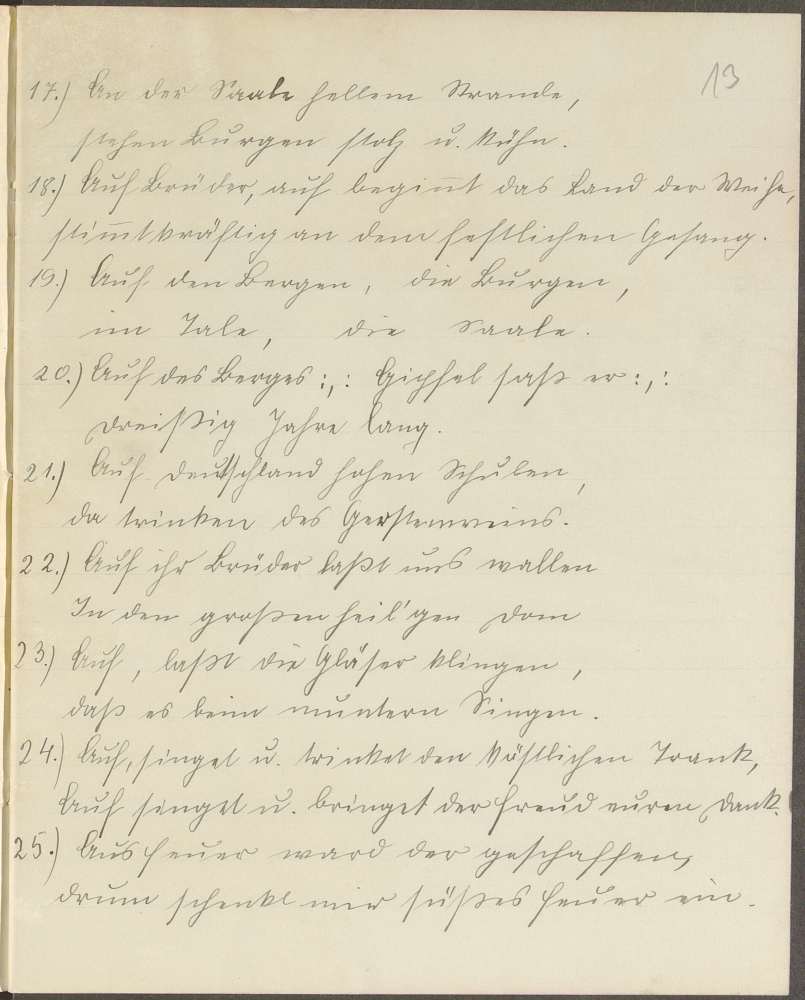 13
17.) An der Saale hellem Strande,
stehen Burgen stolz u. kühn.
18.) Auf Brüder, auf beginnt das Land der Weihe,
stimmt kräftig an dem festlichen Gesang.
19.) Auf den Bergen, die Burgen,
im Tale, die Saale.
20.) Auf des Berges :,: Gipfel saß er :,:
dreißig Jahre lang.
21.) Auf Deutschland hohen Schulen,
da trinken des Gerstenweins.
22.) Auf ihr Brüder laßt uns wallen
In den großen heil'gen Dom
23.) Auf, laßt die Gläser klingen,
daß es beim muntern Singen.
24.) Auf, singet u. trinket den köstlichen Trank,
Auf singet u. bringet der Freud euren Dank.
25.) Aus Feuer ward der geschaffen,
drum schenkt mir süßes Feuer ein.